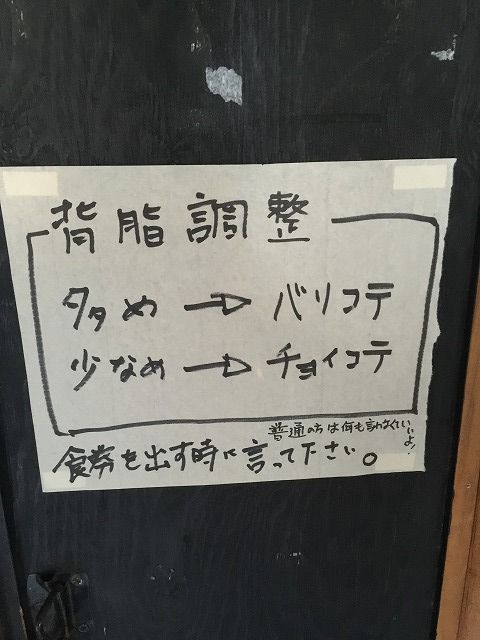 背脂調整
多め→バリコテ
少なめ→チョイコテ
普通の方は何も言わなくていいよ!
食券を出す時に言って下さい。